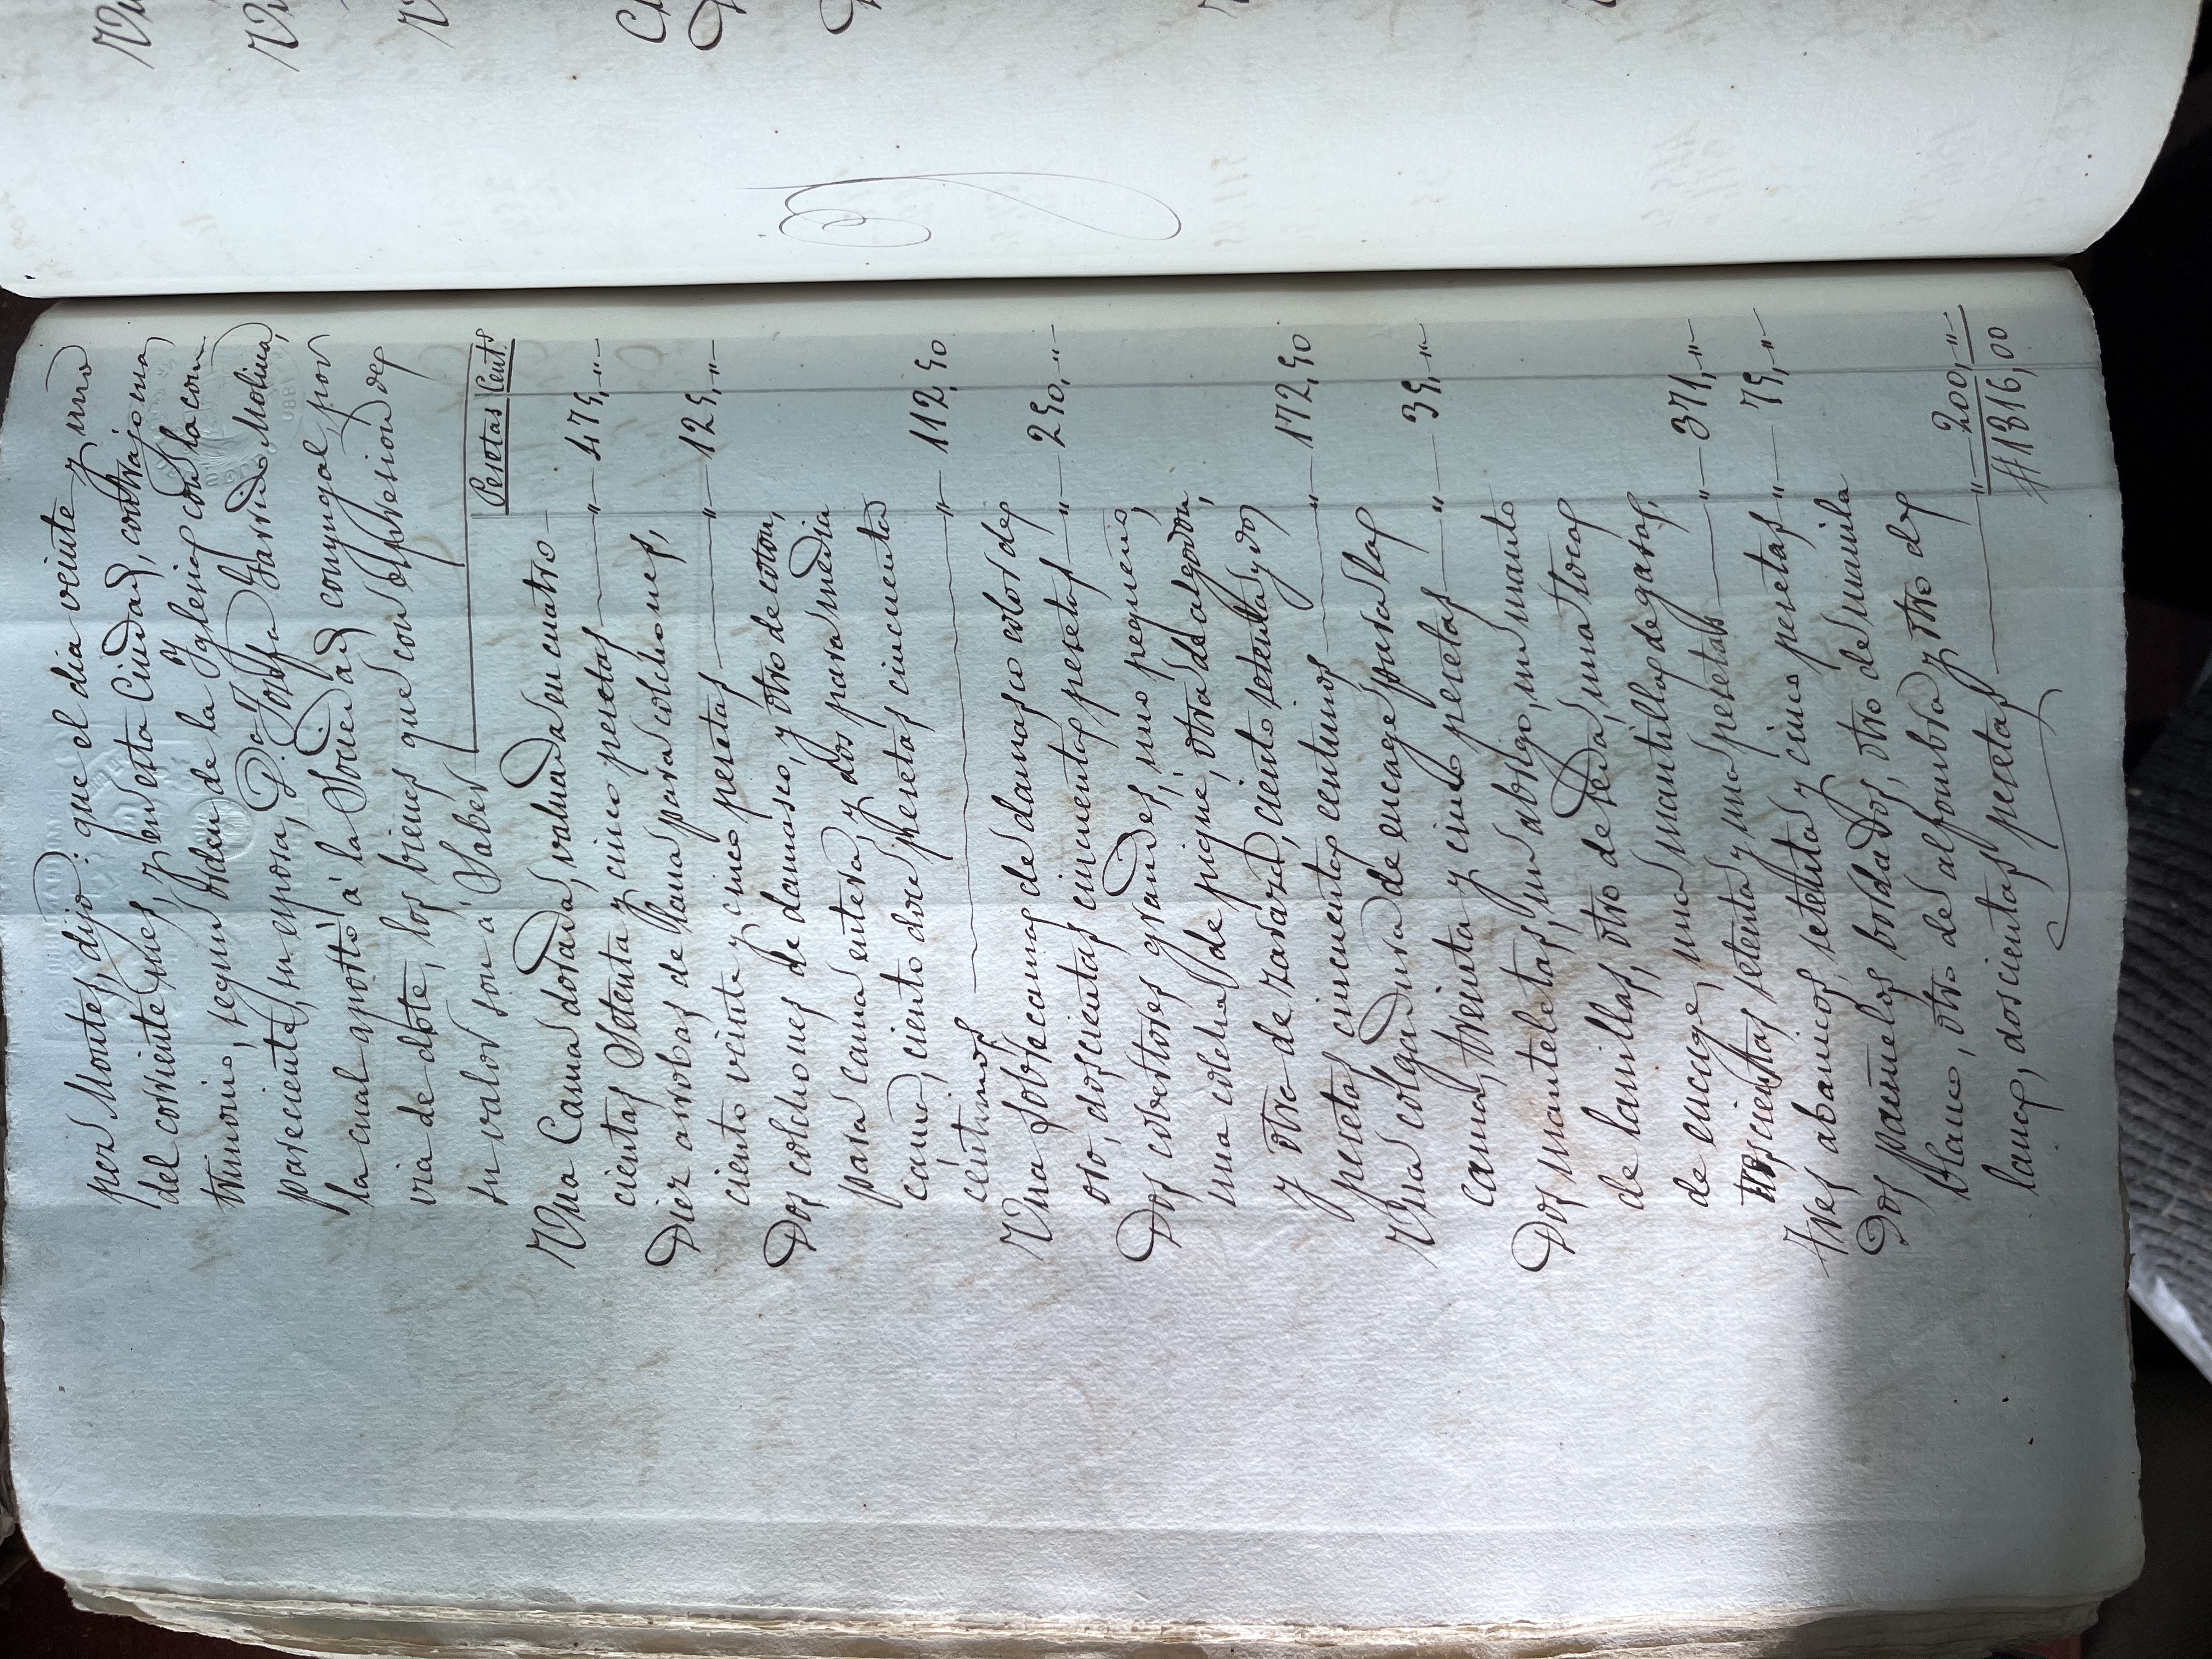 per Montes, dijo: que el dia veinte y uno
del corriente mes, y en esta Ciudad, contrajo ma
trimonio, segun orden de la Yglesia con la com
pareciente, su esposa, D.ª Josefa Garrido Molina,
la cual aportó á la Sociedad conyugal, por
via de dote, los bienes que con espresion de
su valor son á Saber
Pesetas Cent.s
Una Cama dorada, valuada en cuatro
cientas Setenta y cinco pesetas " 475, "
Diez arrobas de lana para colchones,
ciento veinte y cinco pesetas " 125, "
Dos colchones de damasco, y otro de coton,
para cama entera, y dos para media
cama, ciento doce pesetas cincuenta
céntimos " 112,50
Una sobrecama de damasco color de
oro, doscientas cincuenta pesetas " 250, "
Dos cobertores grandes, uno pequeño,
una colcha de piqué, otra de algodon,
y otra de zaraza, ciento setenta y dos
pesetas cincuenta centimos " 172,50
Una colgadura de encage para la
cama, treinta y cinco pesetas " 35, "
Dos manteletas, un abrigo, un manto
de lanilla, otro de seda, una toca
de encage, una mantilla de gasa,
trescientas setenta y una pesetas " 371, "
Tres abanicos, setenta y cinco pesetas " 75, "
Dos pañuelos bordados, otro de manila
blanco, otro de alfombra y otro de
lana, doscientas pesetas " 200, "
# 1816,00